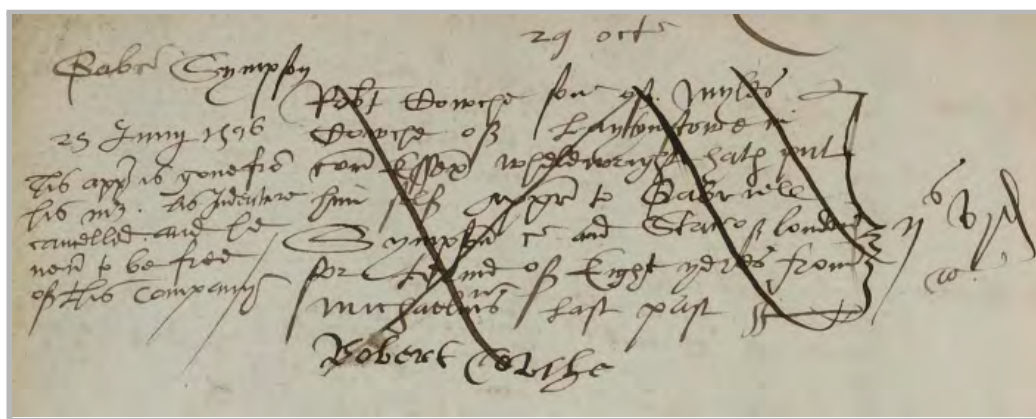 29 octr
Gabr Sympson
25 Junij 1596
This app is gone fro
his mr. his Indenture
cancelled and he
never to be free
of this Company
Robt Dowche sone of Myles
Dowche of Laytonstowe in
com Essex whelewright hath put
him self appr to Gabriell
Sympson C and Stac of london
for thend of Eight yeres from
Michaelms last past
ijs vjd
Robert Dowche